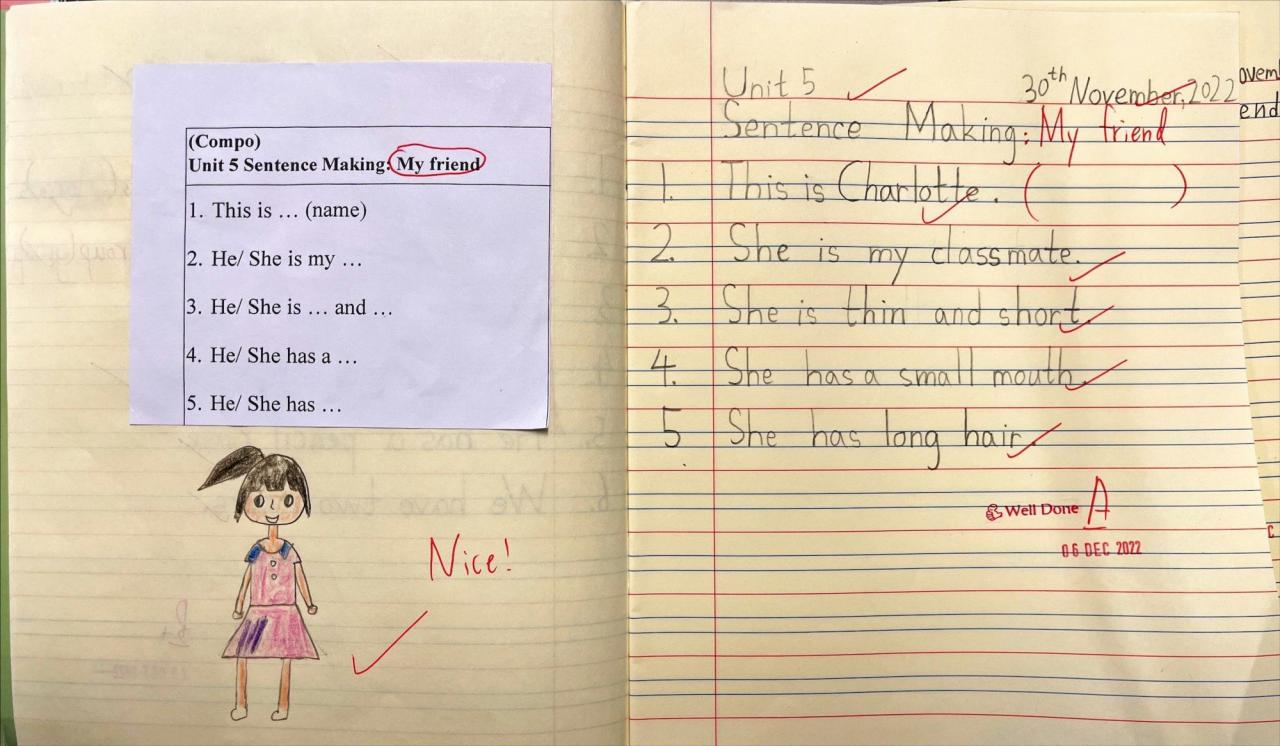 (Compo)
Unit 5 Sentence Making: My friend
1. This is … (name)
2. He/ She is my …
3. He/ She is … and …
4. He/ She has a …
5. He/ She has …
Nice!
Unit 5
30th November, 2022
Sentence Making: My friend
1. This is Charlotte. ( )
2. She is my classmate.
3. She is thin and short.
4. She has a small mouth.
5 She has long hair.
Well Done A
06 DEC 2022
ovem
end